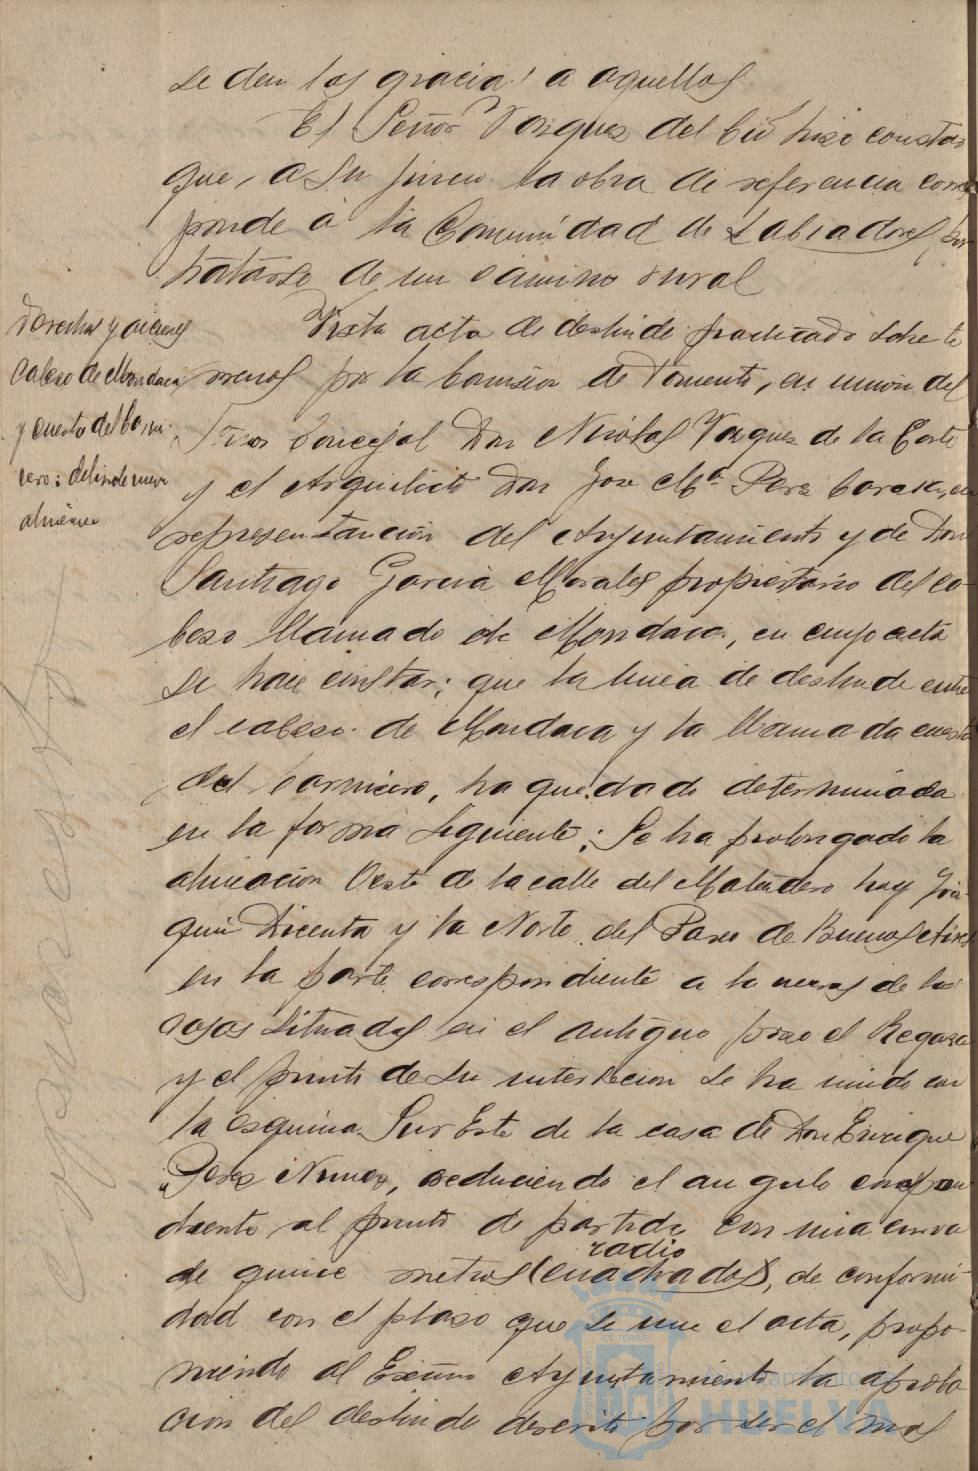 se den las gracias a aquellos
El Señor Vazquez del Cid hizo constar
que, a su juicio la obra de referencia corres
ponde á la Comunidad de Labradores, por
tratarse de un camino rural
Derechos y acciones
Cabezo de Mondaca
y cuesta del Carni-
cero: deslinde nueva
alineación
Vista acta de deslinde practicado sobre te
rrenos por la Comision de Fomento, en union del
Señor Concejal Don Nicolas Vazquez de la Corte
y el Arquitecto Don Jose Mª Perez Carasa, en
representacion del Ayuntamiento y de Don
Santiago Garcia Morales propietario del ca-
bezo llamado de Mondaca, en cuyo acta
se hace constar; que la linea de deslinde entre
el cabezo de Mondaca y la llamada cuesta
del Carnicero, ha quedado determinada
en la forma siguiente: Se ha prolongado la
alineacion Oeste de la calle del Matadero hoy Joa-
quin Dicenta y la Norte del Paseo de Buenos Aires
en la parte correspondiente a la aceras de las
casas situadas en el antiguo pozo el
y el punto de su interseccion se ha unido con
la esquina Sur Este de la casa de Don Enrique
Perez Nuñez, reduciendo el angulo correspon
diente al punto de partida con una curva
radio
de quince metros (cuadrados), de conformi-
dad con el plano que se une el acta, propo-
niendo al Excmo Ayuntamiento la aproba
cion del deslinde descrito por ser el mas
Ayuntamiento de
HUELVA